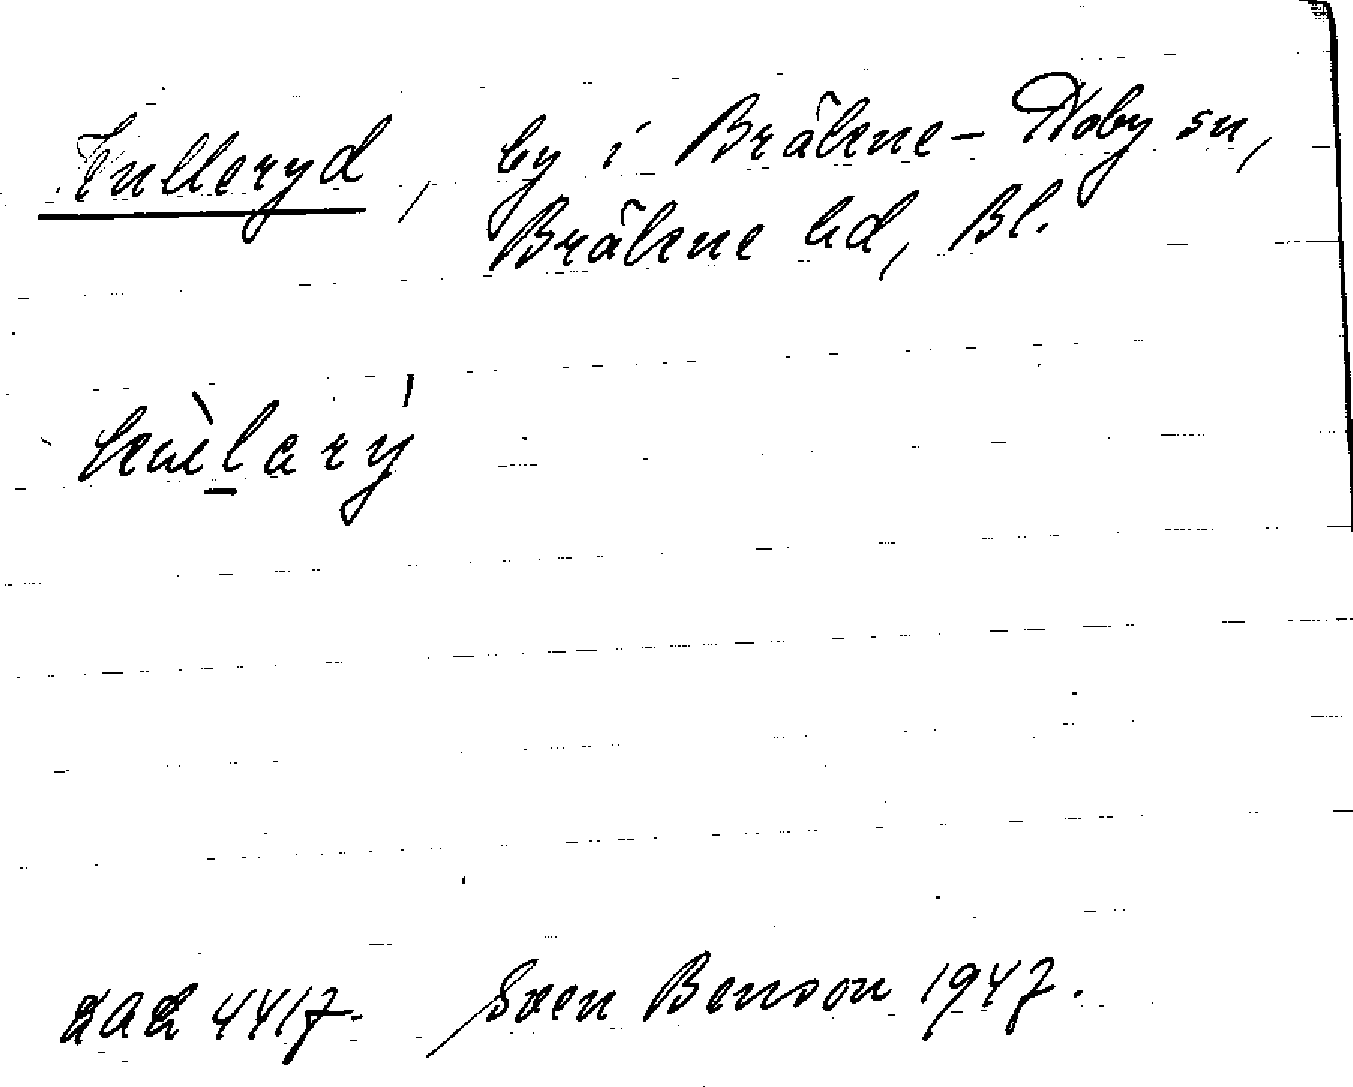 Kulleryd, by i Bräkne-Hoby sn,
Bräkne hd, Bl.
DAL 4417. Sven Benson 1947.